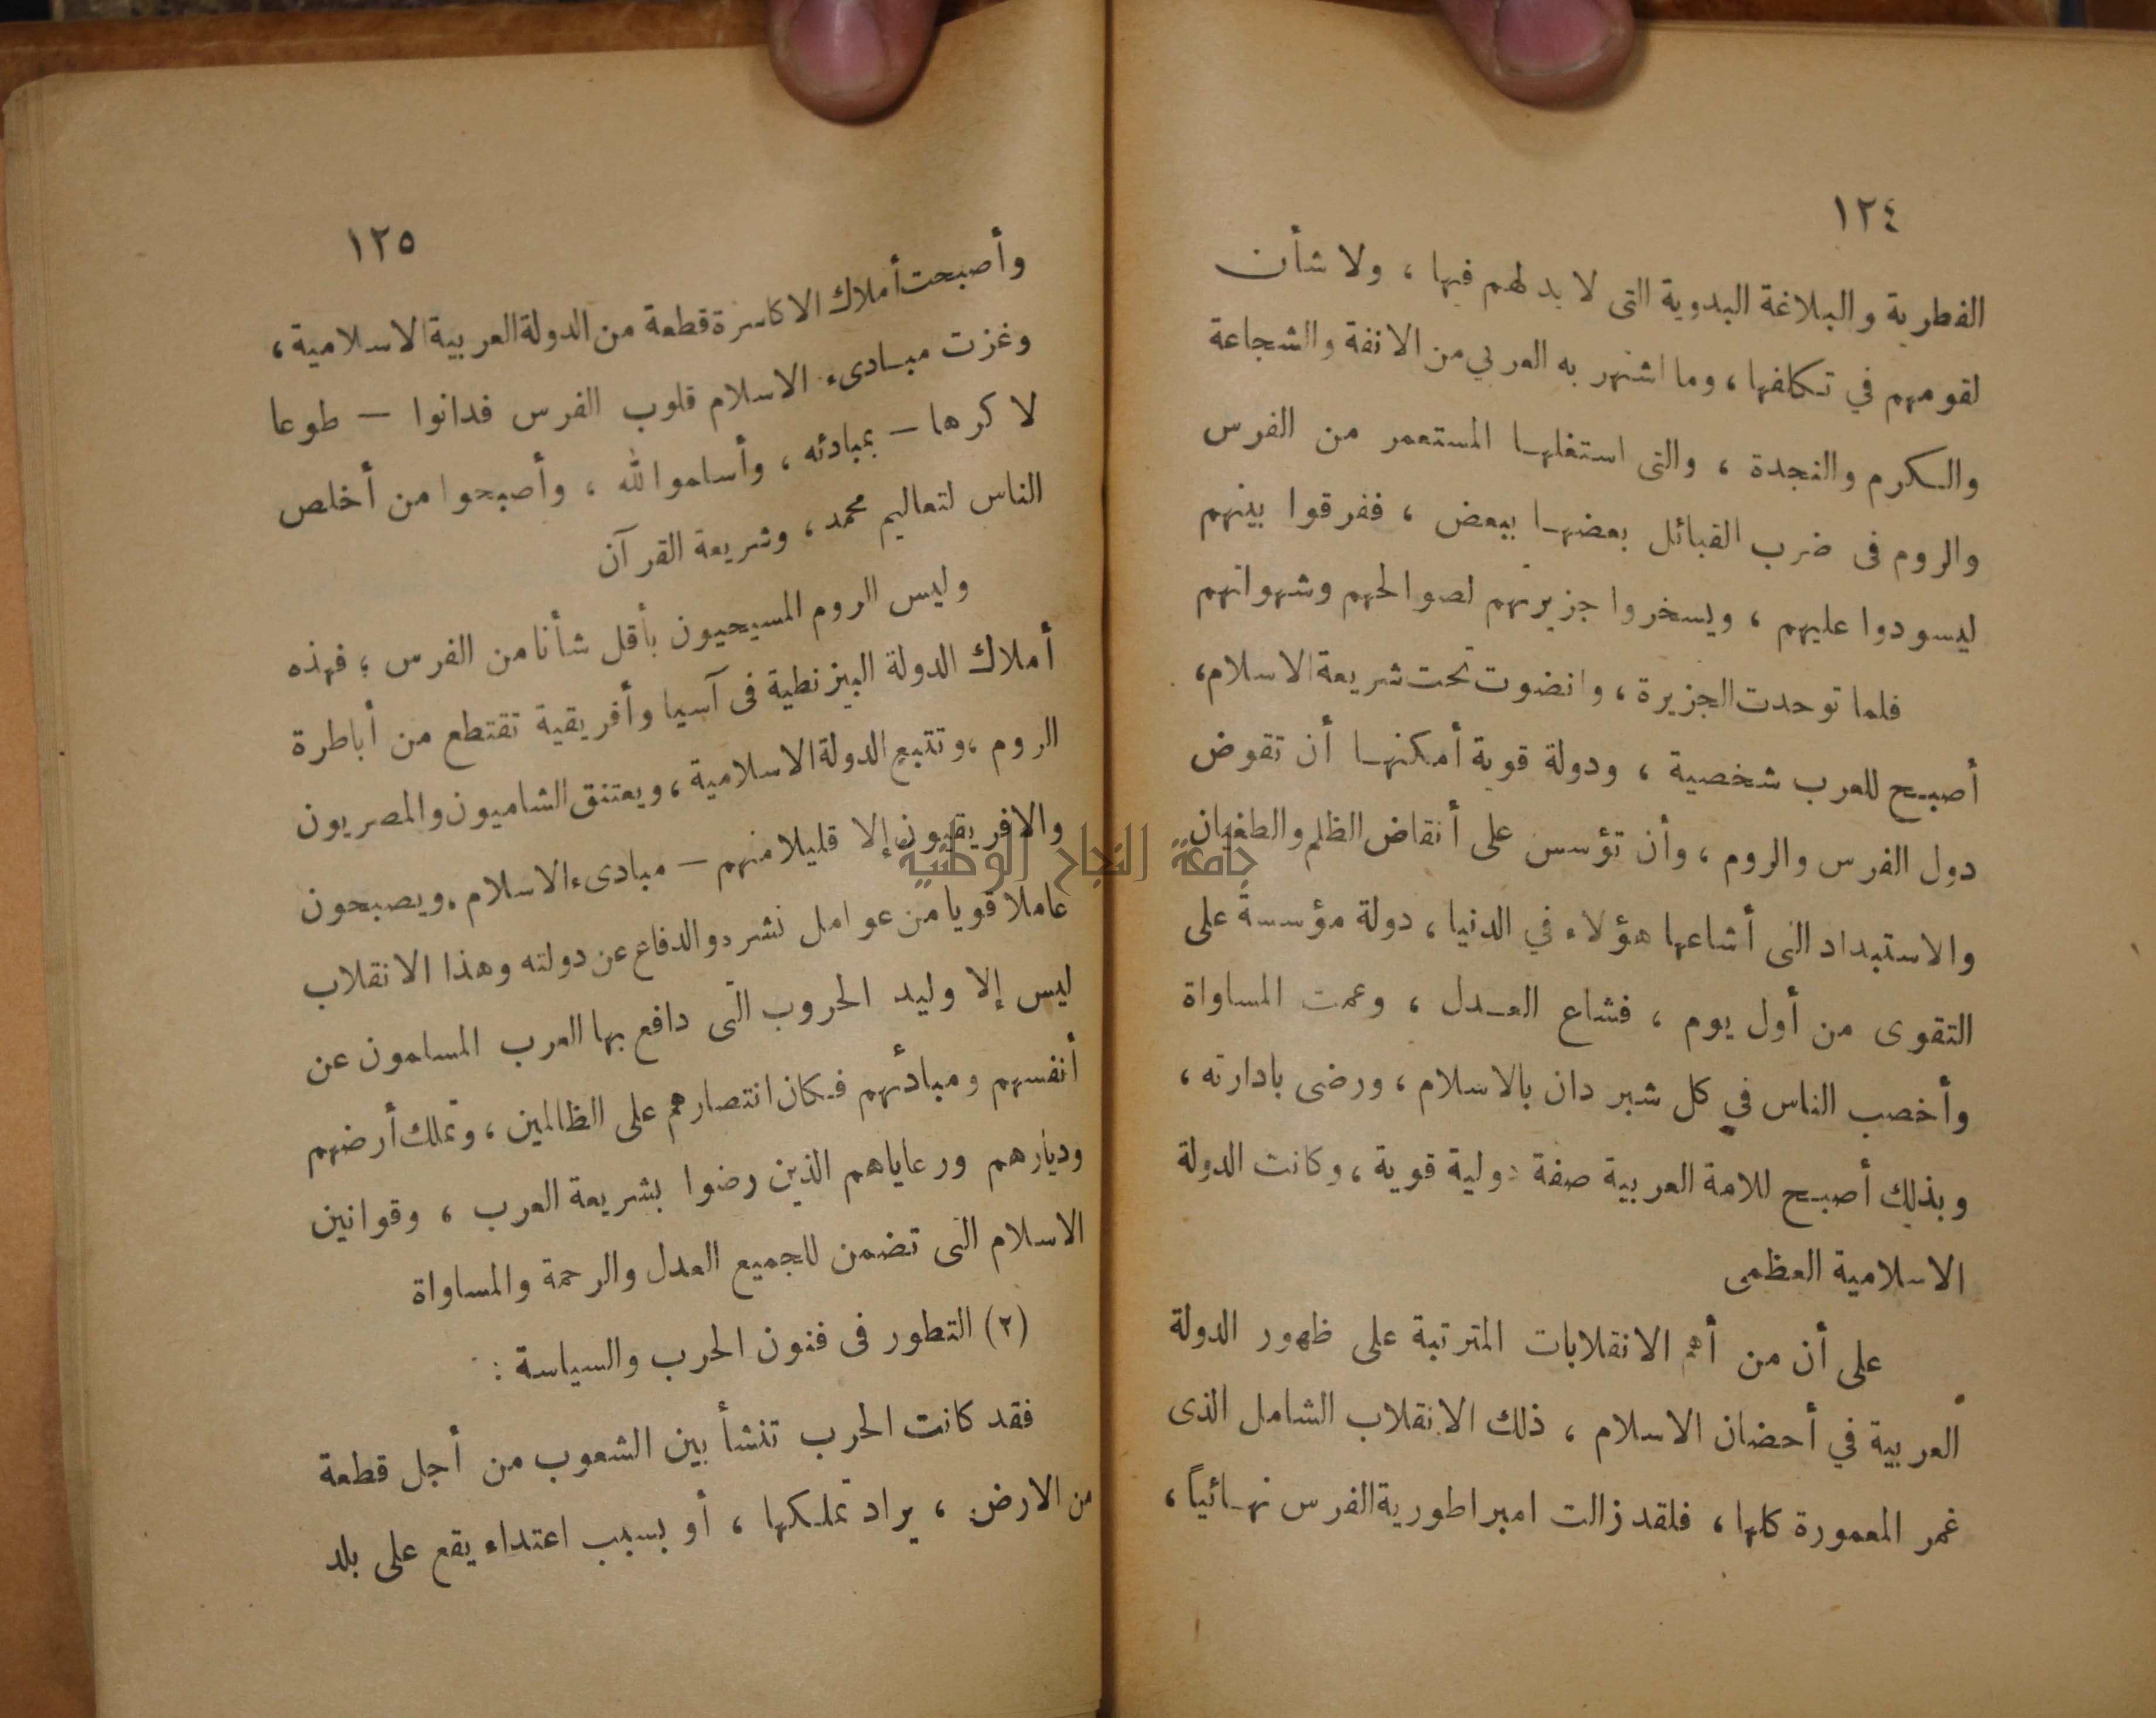 ١٢٤
الفطرية والبلاغة البدوية التى لا يد لهم فيها ، ولا شأن
لقومهم في تكلفها ، وما اشتهر به العربي من الانفة والشجاعة
والكرم والنجدة ، والتى استغلها المستعمر من الفرس
والروم فى ضرب القبائل بعضها ببعض ، ففرقوا بينهم
ليسودوا عليهم ، ويسخروا جزيرتهم لصوالحهم وشهواتهم
فلما توحدت الجزيرة ، وانضوت تحت شريعة الاسلام ،
أصبح للعرب شخصية ، ودولة قوية أمكنها أن تقوض
دول الفرس والروم ، وأن تؤسس على أنقاض الظلم والطغيان
والاستبداد التى أشاعها هؤلاء في الدنيا ، دولة مؤسسة على
التقوى من أول يوم ، فشاع العدل ، وعمت المساواة
وأخصب الناس في كل شبر دان بالاسلام ، ورضى بادارته ،
وبذلك أصبح للامة العربية صفة دولية قوية ، وكانت الدولة
الاسلامية العظمى
على أن من أهم الانقلابات المترتبة على ظهور الدولة
العربية في أحضان الاسلام ، ذلك الانقلاب الشامل الذى
غمر المعمورة كلها ، فلقد زالت امبراطورية الفرس نهائياً ،
١٢٥
وأصبحت أملاك الاكاسرة قطعة من الدولة العربية الاسلامية ،
وغزت مبادىء الاسلام قلوب الفرس فدانوا — طوعا
لا كرها — بمبادئه ، وأسلموا لله ، وأصبحوا من أخلص
الناس لتعاليم محمد ، وشريعة القرآن
وليس الروم المسيحيون بأقل شأنا من الفرس ؛ فهذه
أملاك الدولة البيزنطية فى آسيا وأفريقية تقتطع من أباطرة
الروم ، وتتبع الدولة الاسلامية ، ويعتنق الشاميون والمصريون
والافريقيون إلا قليلا منهم — مبادىء الاسلام . ويصبحون
عاملا قويا من عوامل نشره والدفاع عن دولته وهذا الانقلاب
ليس إلا وليد الحروب التى دافع بها العرب المسلمون عن
أنفسهم ومبادئهم فكان انتصارهم على الظالمين ، وتملك أرضهم
وديارهم ورعاياهم الذين رضوا بشريعة العرب ، وقوانين
الاسلام التى تضمن للجميع العدل والرحمة والمساواة
(٢) التطور فى فنون الحرب والسياسة :
فقد كانت الحرب تنشأ بين الشعوب من أجل قطعة
من الارض ، يراد تملكها ، أو بسبب اعتداء يقع على بلد
جامعة النجاح الوطنية